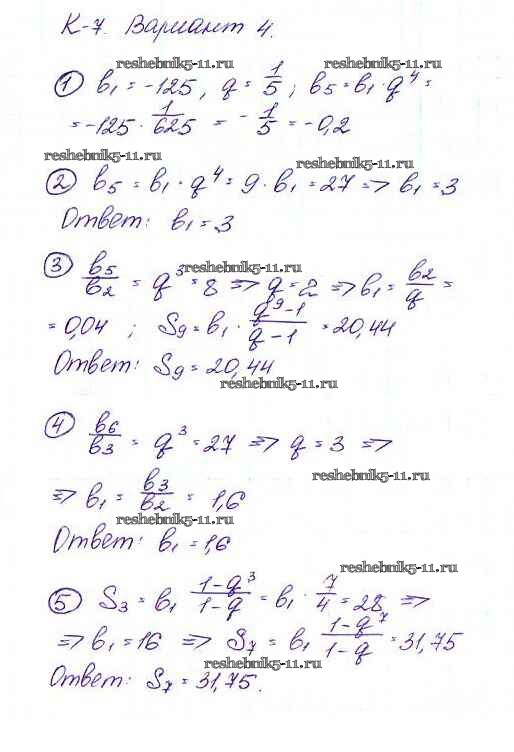 К-7. Вариант 4.
reshebnik5-11.ru reshebnik5-11.ru
① b₁ = -125, q = 1/5; b₅ = b₁ · q⁴ =
= -125 · 1/625 = - 1/5 = -0,2
reshebnik5-11.ru reshebnik5-11.ru
② b₅ = b₁ · q⁴ = 9 · b₁ = 27 => b₁ = 3
Ответ: b₁ = 3
reshebnik5-11.ru
③ b₅/b₂ = q³ = 8 => q = 2 => b₁ = b₂/q =
= 0,04 ; S₉ = b₁ · (q⁹-1)/(q-1) = 20,44
Ответ: S₉ = 20,44
reshebnik5-11.ru
④ b₆/b₃ = q³ = 27 => q = 3 =>
reshebnik5-11.ru
=> b₁ = b₃/b₂ = 1,6
reshebnik5-11.ru
Ответ: b₁ = 1,6
reshebnik5-11.ru
⑤ S₃ = b₁ (1-q³)/(1-q) = b₁ · 7/4 = 28 =>
=> b₁ = 16 => S₇ = b₁ (1-q⁷)/(1-q) = 31,75
reshebnik5-11.ru
Ответ: S₇ = 31,75.